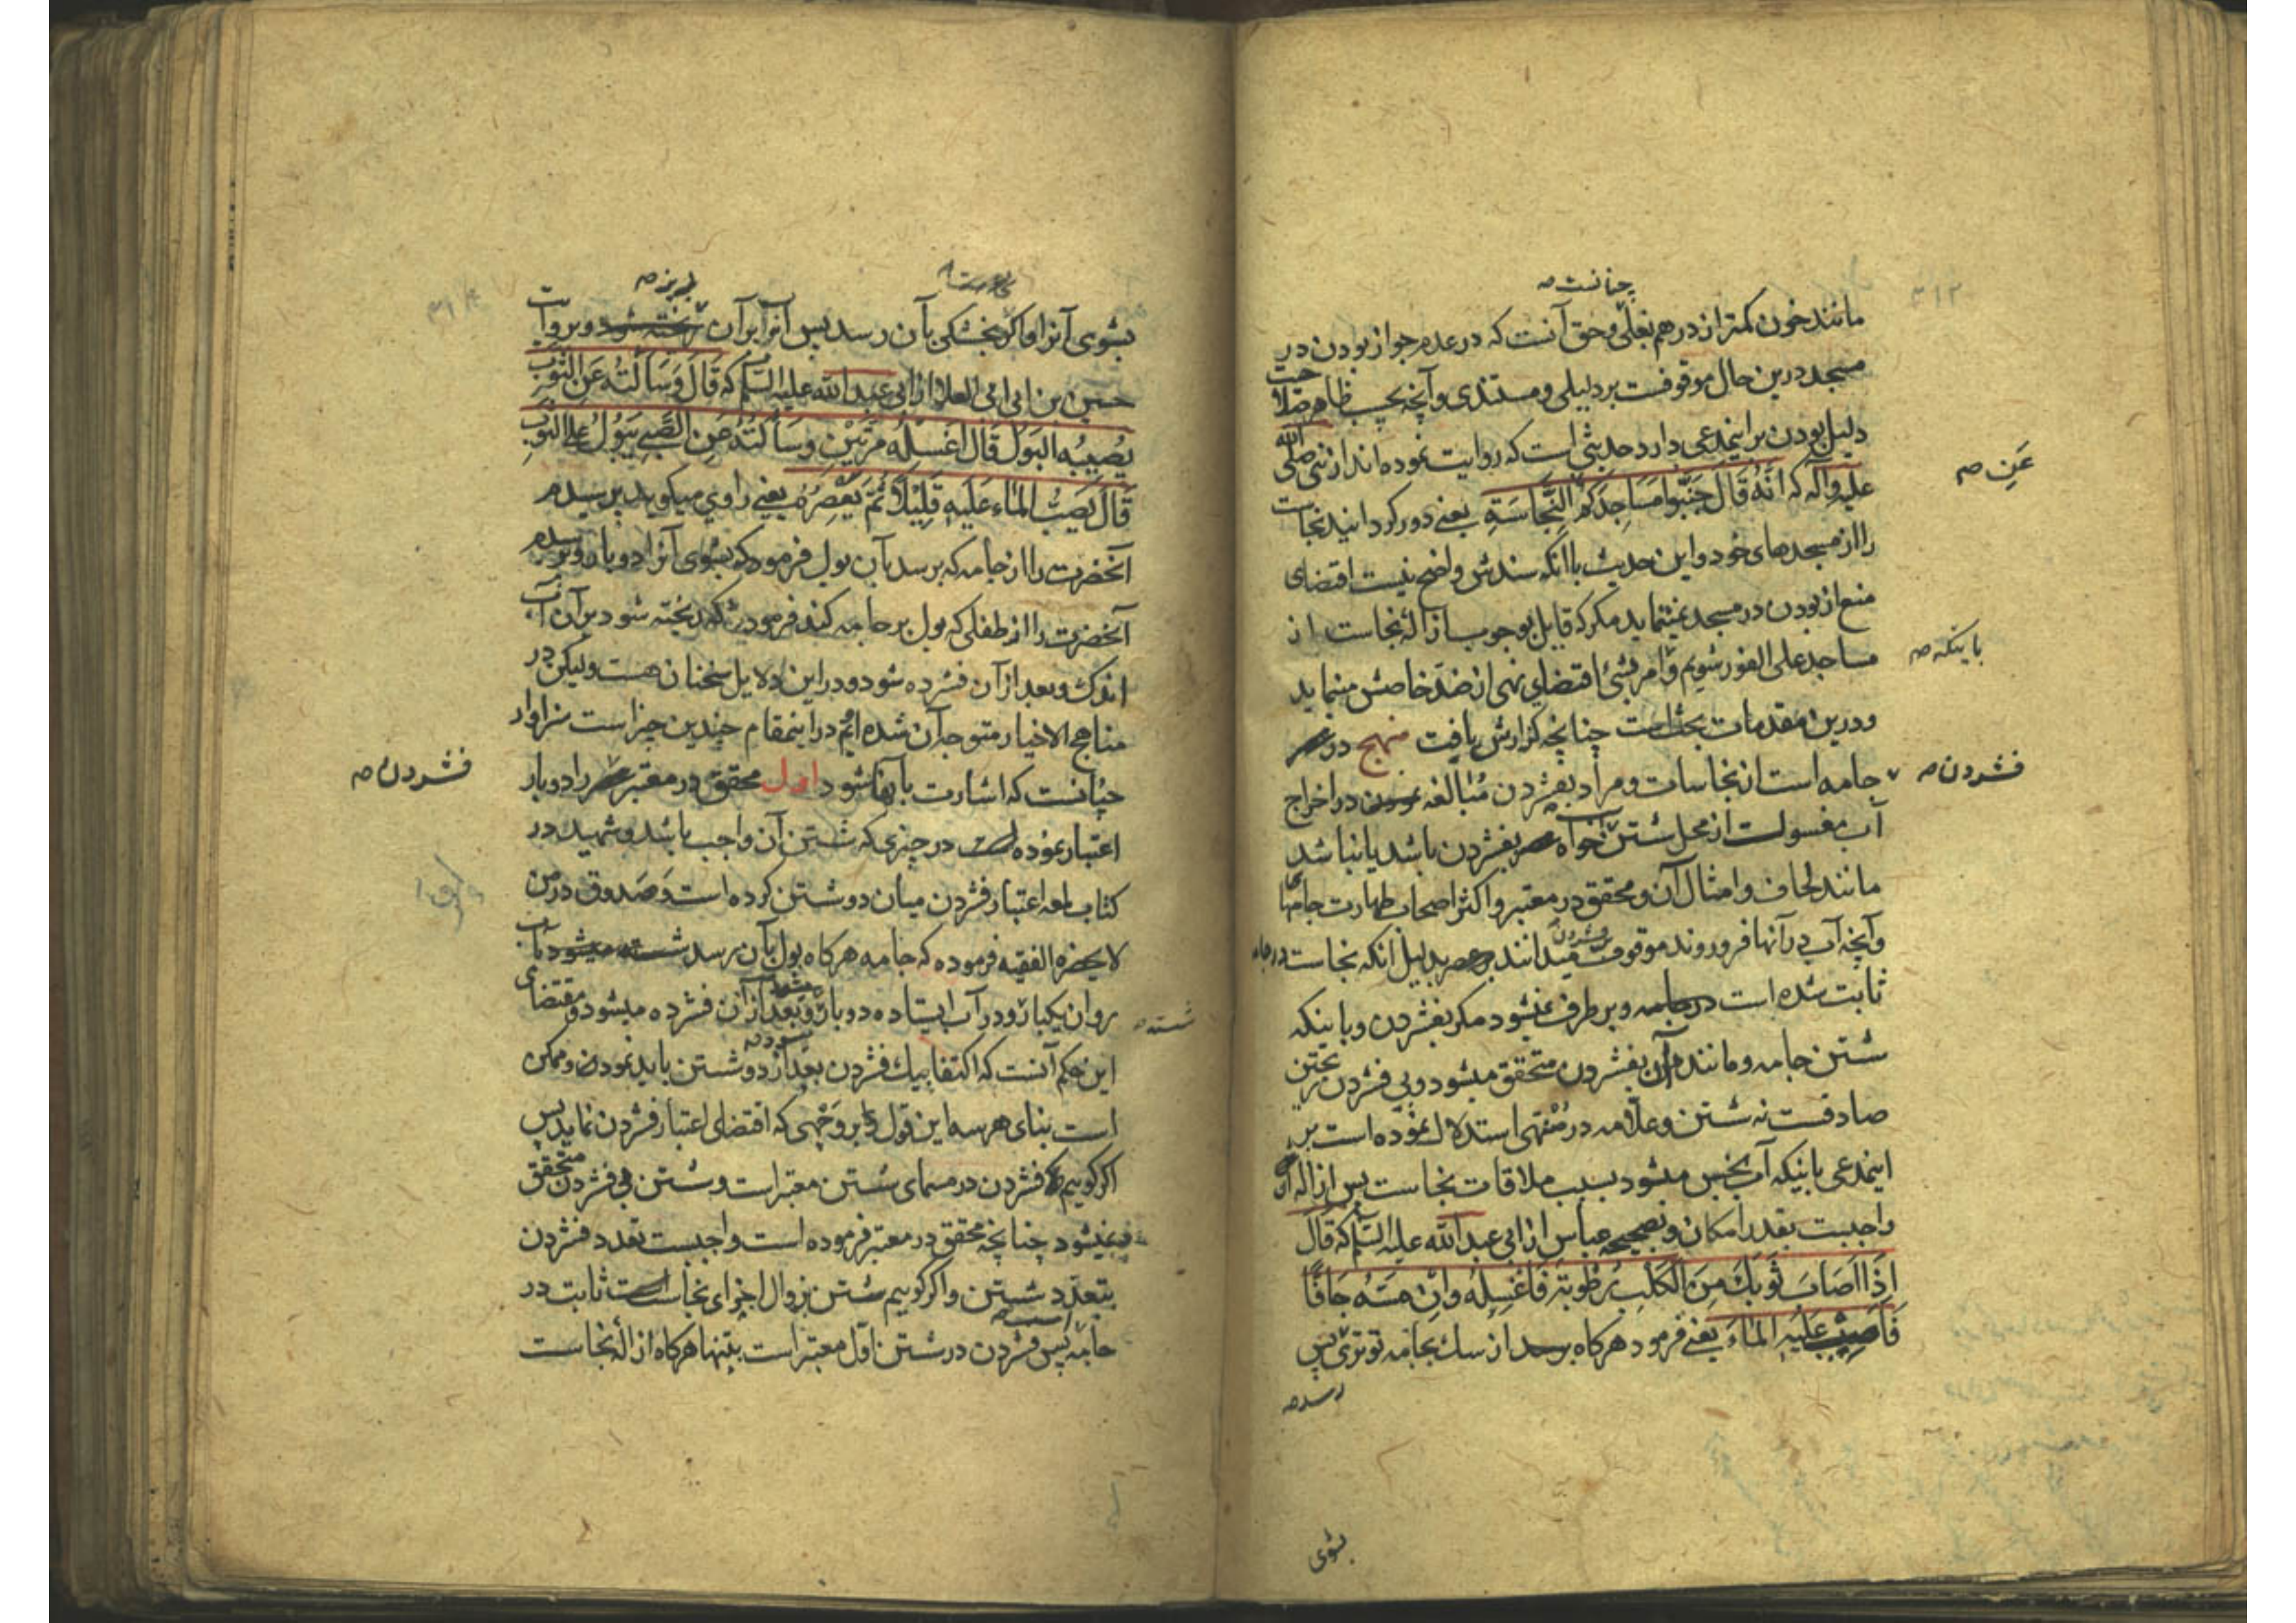 ۳۱۲
چنانست صه
مانند خون کمتر از درهم بغلی و حق آنست که در عدم جواز بودن در
مسجد درین حال موقوفست بر دلیلی و مستندی و آنچه بحسب ظاهر صلاحیت
دلیل بودن بر اینمدعی دارد حدیثی است که روایت نموده اند از نبی صلی الله
علیه وآله که انَّهُ قَال جَنّبوا مَسَاجِدَکُم النَّجَاسَةِ یعنے دور کردانید نجاست
عَنِ صه
را از مسجدهای خود و این حدیث باانکه سندش واضح نیست اقتضای
منع از بودن در مسجد نمینماید مکر که قایل بوجوب ازالهٔ نجاست از
مساجد علی الفور شویم وامر بشئ اقتضای نهی از ضدّ خاصّش مینماید
باینکه صه
ودرین مقدمات بحث است چنانچه کزارش یافت منهج در عصر
جامه است از نجاسات ومراد بفشردن مُبالغه نمودن در اخراج
فشردن صه
آب مغسولست از محل شستن خواه بفشردن باشد یا نباشد
مانند لحاف وامثال آن ومحقق در معتبر واکثر اصحاب طهارت جامها
وآنچه آب در آنها فرو روند موقوف میدانند بر عصر بدلیل انکه نجاست در جامه
فشردن
ثابت شده است در جامه وبر طرف نمیشود مکر بفشردن وباینکه
شستن جامه ومانند آن بفشردن متحقق میشود وبی فشردن ریختن
صادقست نه شستن وعلّامه در مُنْتهی استدلال نموده است بر
اینمدعی باینکه آب نجس میشود بسبب ملاقات نجاست پس ازاله آن
واجبست بقدر امکان وبصحیحه عباس از ابی عبد الله علیه السّلم که قال
اِذَا اَصَابَ ثَوبَكَ مِنَ الکَلبِ رُطُوبَةٌ فَاغسِلهُ وَاِنْ مَسَّه جَافًّا
فَاصبُب عَلَیْهِ المٰاءَ یعنے فرمود هرکاه برسد از سك بجامه تو تری پس
رسد صه
بشوی
بریز صه
بشوی آنرا واکر بخشکی بآن رسد پس آنرا بر آن ریخته شود وبروایت
حسین بن ابی العلا از ابی عبد الله علیه السّلم که قَالَ وَسَأَلْتُه عَنِ الثَّوبِ
یُصِیبُه البَولُ قَالَ اغسِلْهُ مَرّتَیْن وَسَأَلتُهُ عَنِ الصَّبِیِ یَبُولُ عَلَی الثَّوبِ
قَالَ یَصُبُّ المٰاءَ عَلَیهِ قَلِیْلًا ثُمَّ یَعْصِرُهُ یعنے راوی میکوید پرسیدم
آنحضرت را از جامه که برسد بآن بول فرمود که بشوی آنرا دو بار وپرسیدم
آنحضرت را از طفلی که بول بر جامه کند فرمود که ریخته شود بر آن آب
اندك وبعد از آن فشرده شود ودر این دلایل سخنان هست ولیکن در
مناهج الاخیار متوجه آن شده ایم در اینمقام چندین چیز است سزاوار
چنانست که اشارت بآنها شود اول محقق در معتبر عصر را دو بار
فشردن صه
اعتبار نموده است در چیزی که شستن آن واجب باشد وشهید در
کتاب لمعه اعتبار فشردن میان دو شستن کرده است وَصَدوق در من
لا یحضره الفقیه فرموده که جامه هرکاه بول بآن رسد شسته میشود بآب
روان یکبار ودر آب ایستاده دو بار وبعد از آن فشرده میشود ومقتضای
شسته صه
میشود
این حکم آنست که اکتفا بیك فشردن بعد از دو شستن باید نمودن وممکن
است بنای هر سه این قول بر وَجْهی که اقتضای اعتبار فشردن نماید پس
اکر کوییم که فشردن در مسمای شستن معتبر است وشستن بی فشردن متحقق
نمیشود چنانچه محقق در معتبر فرموده است واجبست تعدد فشردن
بتعدّد شستن واکر کوییم شستن بزوال اجزای نجاست ثابت در
جامه پس فشردن در شستن اوّل معتبر است بتنها هرکاه ازالهٔ نجاست